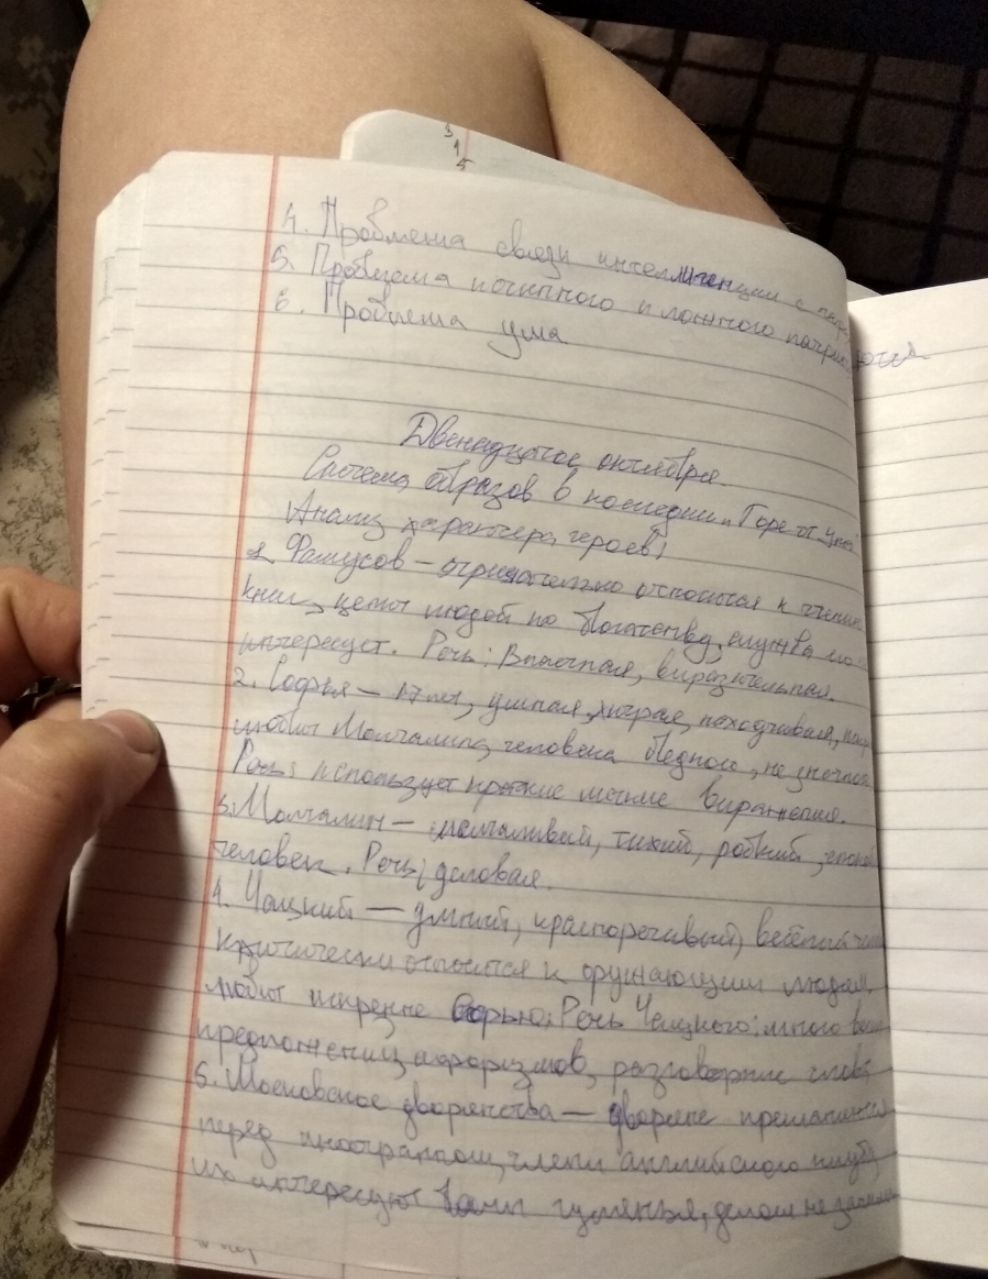 3
1
5
4. Проблема связи интеллигенции с
5. Проблема истинного и ложного патриотизма
6. Проблема ума
Двенадцатое октября.
Система образов в комедии "Горе от ума"
Анализ характера героев)
1. Фамусов - отрицательно относится к чтению
книг, ценит людей по богатству, служба не
интересует. Речь: Властная, выразительная.
2. Софья - 17 лет, умная, хитрая, находчивая,
любит Молчалина, человека бедного, не знатного
Речь: использует краткие выражения.
3. Молчалин - молчаливый, тихий, робкий,
человек. Речь: деловая.
4. Чацкий — умный, красноречивый, весёлый
Критически относится к окружающим людям,
любит искренне Софью. Речь Чацкого: много
предложений, афоризмов, разговорные слова
5. Московское дворянства — дворяне преклоняются
перед иностранцами, члены английского клуба,
их интересуют балы гулянья, делом не